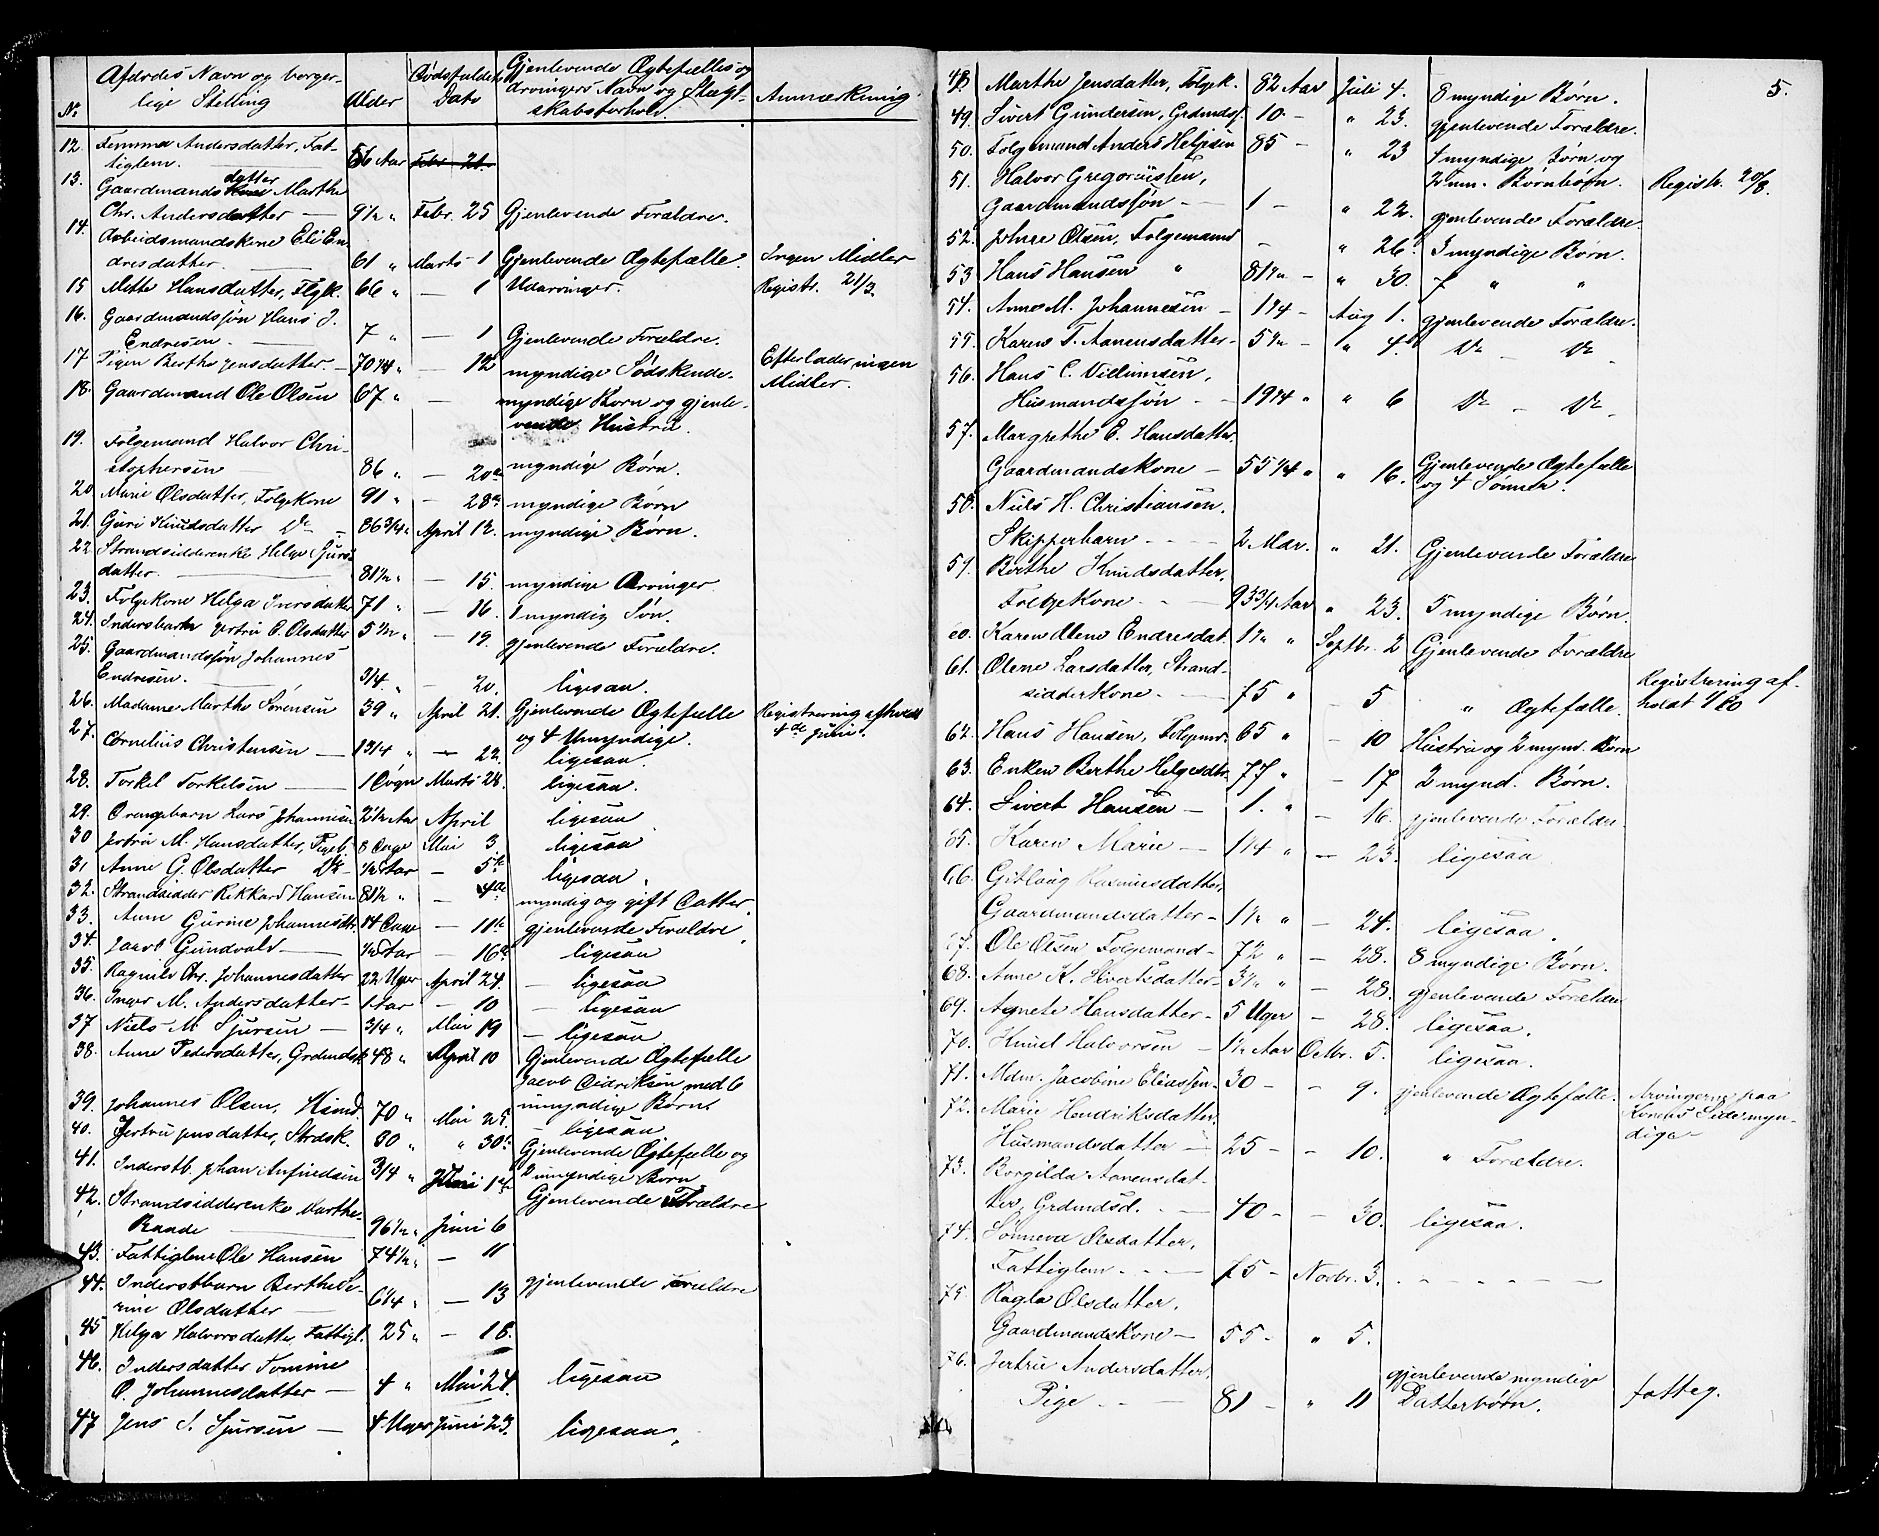 Nr. Afdødes Navn og borger- Alder Dødsfaldets Gjenlevende Ægtefælles og Anmærkning
lige Stilling Dato Arvingers Navn og Slægt-
skabsforhold.
12. Temma Andersdatter, Fat-
tiglem. 66 Aar Febr 21.
13. Gaardmands datter Marthe
Chr. Andersdatter — 9 1/2 " Febr. 25 Gjenlevende Forældre.
14. Arbeidsmandskone Eli En-
dresdatter. 61 " Marts 1 Gjenlevende Ægtefælle. Ingen Midler
15 Mette Hansdatter, Flgk. 66 " — 1 Udarvinger. Registr. 21/3.
16. Gaardmandssøn Hans J.
Endresen. — 7 " — 1 Gjenlevende Forældre.
17 Pigen Berthe Jensdatter. — 70 1/4 " — 12 myndige Sødskende. Efterlader ingen
Midler.
18. Gaardmand Ole Olsen 67 " — myndige Børn og gjenle-
vende Hustru.
19. Følgemand Halvor Chri-
stophersen — 86 " — 20de myndige Børn.
20 Marie Olsdatter, Følgekone 91 " — 28de myndige Børn
21. Guri Knudsdatter Do — 86 3/4 " April 12. myndige Børn.
22 Strandsidderenke Helge Sjurs
datter. — 81 1/2 " — 15. myndige Arvinger
23. Følgekone Helga Iversdatter 71 " — 16. 1 myndig Søn.
24. Inderstbarn Jertru C. Olsdatter 5 1/2 " — 19. gjenlevende Forældre.
25. Gaardmandssøn Johannes
Endresen. — 3/4. " — 20. ligesaa.
26. Madame Marthe Sørensen 39 " April 21. Gjenlevende Ægtefælle Registrering afholdt
og 4 Umyndige. 4de Juni.
27. Cornelius Christensen — 13/4 " — 22. ligesaa.
28. Torkel Torkelsen — 1 Døgn Marts 28. ligesaa.
29. Drengebarn Lars Johannesen 2 1/2 Aar April ligesaa
30 Jertru M. Hansdatter, Pigeb. 8 Dage Mai 3 ligesaa
31 Anne G. Olsdatter Do — 1/2 Aar — 5te ligesaa.
32. Strandsidder Rikkard Hansen 81 1/2 " — 4de myndig og gift Datter.
33. Anne Gurine Johannesdtr. 14 Dage — 11te gjenlevende Forældre
34. Jacob Gundvald — 1/2 Aar — 16de ligesaa
35. Chr. Johannesdatter 22 Uger April 24. — ligesaa
36. Inger M. Andersdatter — 1 Aar — 10 — ligesaa
37 Niels M. Sjursen — 3/4 " Mai 19 — ligesaa
38. Anne Pedersdatter, Grdmdsk 48 " April 10 Gjenlevende Ægtefælle
Jacob Didriksen med 6
umyndige Børn.
39. Johannes Olsen, Husmd. 70 " Mai 25. — ligesaa
40. Jertru Jensdatter, Strdsk. 80 " " 30te Gjenlevende Ægtefælle og
41. Inderstb. Johan Anfindsen 3/4 " Juni 1ste 2 umyndige Børn
Gjenlevende Forældre
42. Strandsidderenke Marthe
Raade — 96 1/2 " Juni 6
43. Fattiglem Ole Hansen 74 1/2 " — 11
44. Inderstbarn Berthe Se-
rine Olsdatter — 6 1/4 " — 13 gjenlevende Forældre
45 Helga Halvorsdatter Fattigl. 25 " — 18.
46. Indersdatter Tomine
O. Johannesdatter — 4 " Mai 24. ligesaa
47 Jens S. Sjursen — 4 Uger Juni 23. ligesaa.
5.
48 Marthe Jensdatter, Følgek. 82 Aar Juli 4. 8 myndige Børn.
49. Sivert Gundersen, Grdmds. 10 — " 23. gjenlevende Forældre.
50. Følgemand Anders Helgesen 85 — " 23 4 myndige Børn og
2 um. Børnbørn. Registr. 20/8.
51. Halvor Gregoriussen,
Gaardmandssøn — 1 — " 22. gjenlevende Forældre.
52. Johne Olsen, Følgemand — " 26. 3 myndige Børn.
53 Hans Hansen " 81 1/2 — " 30. 7 " "
54. Anne M. Johannesen — 1 1/4 — Aug 1. gjenlevende Forældre.
55. Karen T. Aanensdatter — 5 1/2 — " 4. Do — Do
56. Hans C. Villumsen,
Husmandssøn — 19 1/4 " " 6 Do — Do
57. Margrethe E. Hansdatter
Gaardmandskone — 55 1/4 " " 16. Gjenlevende Ægtefælle
og 4 Sønner.
58. Niels H. Christiansen,
Skipperbarn — 2 Mdr. " 21. Gjenlevende Forældre
59. Berthe Knudsdatter,
Følgekone — 93 3/4 Aar " 23. 5 myndige Børn.
60. Karen Elene Endresdat. 1 1/2 " Septbr. 2 Gjenlevende Forældre
61. Olene Larsdatter, Strand-
sidderkone. — 75 " — 5 " Ægtefælle. Registrering af-
holdt 1/10
62. Hans Hansen, Følgemd. 65 " — 10 Hustru og 2 mynd. Børn
63. Enken Berthe Helgesdtr. 77 " — 17 2 mynd. Børn.
64. Sivert Hansen — 1. " — 16. gjenlevende Forældre.
65. Karen Marie — 1 1/4 " — 23. ligesaa
66. Gitlaug Rasmusdatter,
Gaardmandsdatter — 1 1/2 " — 24. ligesaa.
67. Ole Olsen Følgemand — 72 " — 28. 8 myndige Børn.
68. Anne K. Sivertsdatter — 3 1/2 " — 28. gjenlevende Forældre
69. Agnete Hansdatter — 5 Uger — 28. ligesaa.
70. Knud Halvorsen — 1 1/2 Aar Octbr. 5. ligesaa.
71. Mdm. Jacobine Eliassen — 30 — — 9. gjenlevende Ægtefælle. Arvingerne paa
Konens Side myn-
dige —
72. Marie Hendriksdatter,
Husmandsdatter — 25 — — 10. " Forældre.
73. Borgilda Aanensdat-
ter, Grdmdsd. — 40 — — 30. ligesaa.
74. Sønneva Olsdatter,
Fattiglem — 75 — Novbr. 3. — — — — —
75. Ragla Olsdatter,
Gaardmandskone — 55 — " 5.
76. Jertrue Andersdatter,
Pige — 81 — " 11 gjenlevende myndige
Datterbørn. fattig.